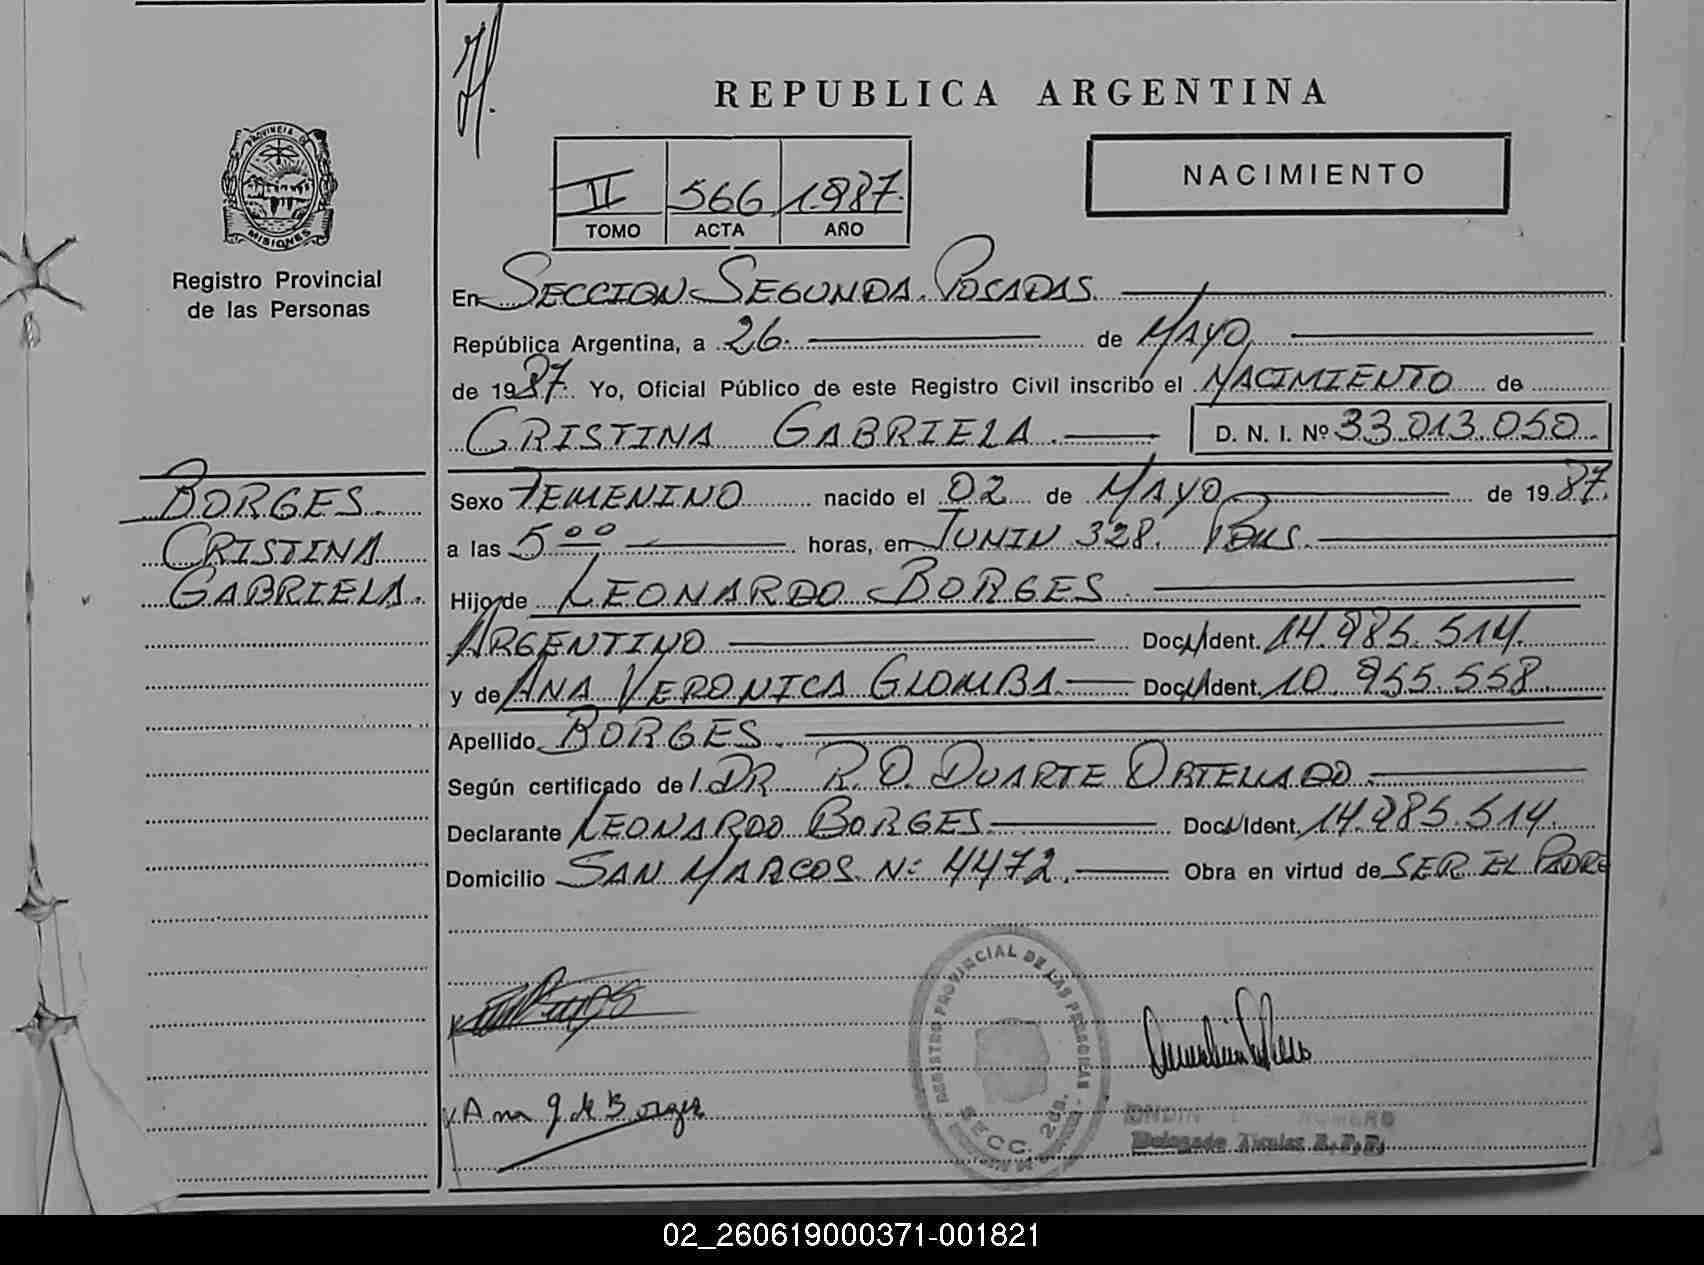 REPUBLICA ARGENTINA
PROVINCIA DE
MISIONES
Registro Provincial
de las Personas
II 566 1987.
TOMO ACTA AÑO
NACIMIENTO
En SECCION SEGUNDA POSADAS
República Argentina, a 26. de MAYO
de 1987. Yo, Oficial Público de este Registro Civil inscribo el NACIMIENTO de
CRISTINA GABRIELA D. N. I. Nº 33.013.050
BORGES
CRISTINA
GABRIELA.
Sexo FEMENINO nacido el 02 de MAYO de 1987.
a las 5 00 horas, en JUNIN 328. Pdas.
Hijo de LEONARDO BORGES
ARGENTINO Doc. Ident. 14.985.514.
y de ANA VERONICA GLOMBA Doc. Ident. 10.955.558
Apellido BORGES
Según certificado de l DR R.O. DUARTE ORTELLADO
Declarante LEONARDO BORGES Doc. Ident. 14.985.514.
Domicilio SAN MARCOS Nº 4472. Obra en virtud de SER EL PADRE
REGISTRO PROVINCIAL DE LAS PERSONAS
SECC. 2da.
x Ana G de Borges
Delegado Titular R.P.P.
02_260619000371-001821